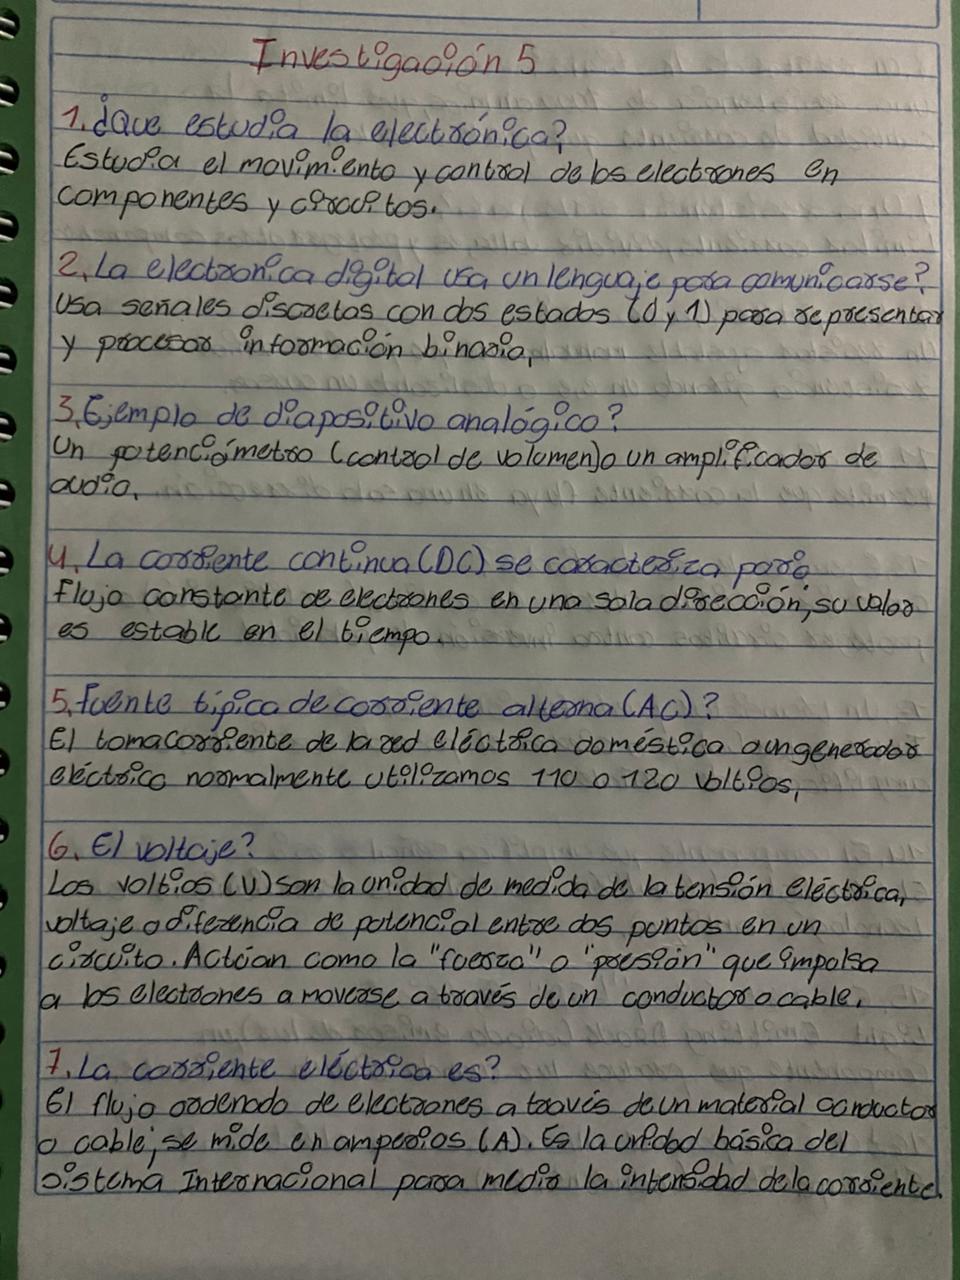 Investigación 5
1. ¿Que estudia la electrónica?
Estudia el movimiento y control de los electrones en
componentes y circuitos.
2. La electronica digital usa un lenguaje para comunicarse?
Usa señales discretas con dos estados (0 y 1) para representar
y procesar información binaria,
3. Ejemplo de diapositivo analógico?
Un potenciómetro (control de volumen) o un amplificador de
audio.
4. La corriente continua (DC) se caracteriza para
flujo constante de electrones en una sola dirección, su valor
es estable en el tiempo.
5. fuente tipica de corriente alterna (AC)?
El tomacorriente de la red eléctrica doméstica o un generador
eléctrico normalmente utilizamos 110 o 120 voltios,
6. El voltaje?
Los voltios (V) son la unidad de medida de la tensión eléctrica,
voltaje o diferencia de potencial entre dos puntos en un
circuito. Actúan como la "fuerza" o "presión" que impulsa
a los electrones a moverse a través de un conductor o cable.
7. La corriente eléctrica es?
El flujo ordenado de electrones a través de un material conductor
o cable; se mide en amperios (A). Es la unidad básica del
sistema Internacional para medir la intensidad de la corriente.